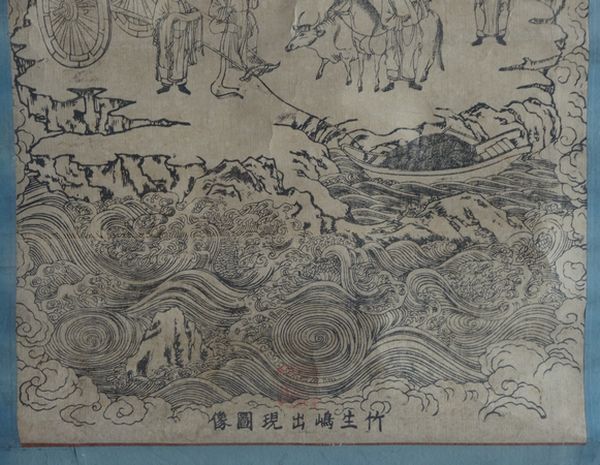 竹生嶋出現圖像